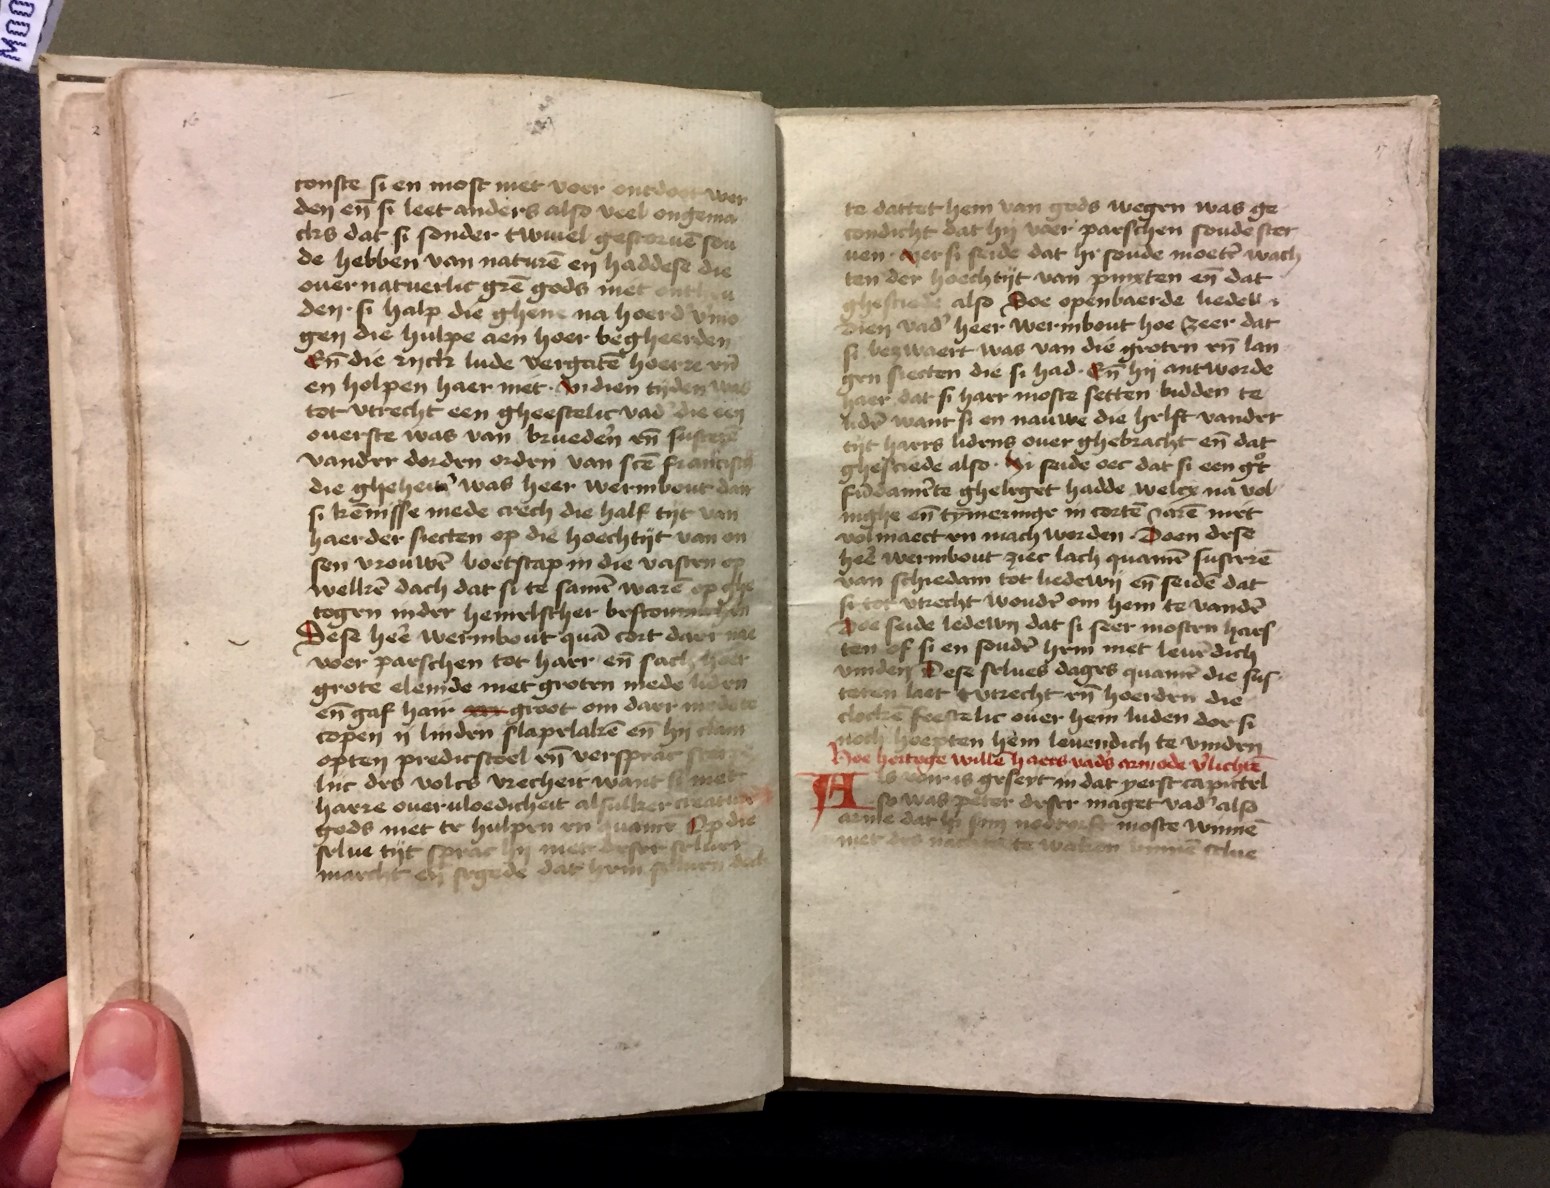 M00
2
16
conste si en most niet voer ontdoet wer
den en̄ si leet anders also veel ongema
cks dat si sonder twiuel gestoruē sou
de hebben van naturē en haddese die
ouernatuerlic grē gods niet
den · si halp die ghene na hoerd
gen die hulpe aen hoer begheerden
En̄ die rijck lude vergatē hoerre en̄
en holpen haer niet · In dien tijden was
tot vtrecht een gheestelic vad' die een
ouerste was van brueders en̄ susterē
vander dorden orden van scē francisco
die ghehetē was heer wermbout dair
si kēnisse mede creech die half tijt van
haerder siecten op die hoechtijt van on
sen vrouwē boetscap in die vasten op
welkē dach dat si te samē warē op ghe
togen inder hemelscher bescouwinghen
Dese heē wermbout quā cort daer nae
voer paeschen tot haer en̄ sach hoer
grote elende met groten mede liden
en̄ gaf hair groot om daer mede te
copen ij linden slaeplakē en̄ hij clam
opten predicstoel en̄ versprac
lic des volcs vrecheit want si met
harre oueruloedicheit alsulker creatuer
gods niet te hulpen en quamē Op die
selue tijt sprac hij met deser seluer
maecht en segede dat hem seluen docht
te dattet hem van gods wegen was ge
condicht dat hij voer paeschen soude ster
uen · Mer si seide dat hi soude moetē wach
ten der hoechtijt van pinxten en̄ dat
ghesciede also Doe openbaerde liedewi
dien vad' heer wermbout hoe zeer dat
si bezwaert was van die groten en̄ lan
gen siecten die si had · En̄ hij antworde
haer dat si haer moste setten bidden te
lidē want si en nauwe die helft vander
tijt haers lidens ouer ghebracht en̄ dat
ghesciede also · Hi seide oec dat si een gͦt
fūdamēte gheleget hadde welcx na vol
inghe en̄ tȳmeringe in cortē iarē niet
volmaect en mach worden · Doen dese
heē wermbout ziec lach quamē susterē
van schiedam tot liedewij en̄ seidē dat
si tot vtrecht woudē om hem te vandē
Doe seide ledewij dat si seer mosten haes
ten of si en soudē hem niet leuēdich
vinden Dese selues dages quamē die sus
teren laet tvtrecht en̄ hoerden die
clockē feestelic ouer hem luden doe si
noch hoepten hem leuendich te vinden
Hoe hertoge willē haers vad's armoede v'lichtē
Als voir is geseyt in dat yerst capittel
so was peter deser maget vad' also
arme dat hi sijn nootdorft moste winnē
met des nachts te waken binnē selue